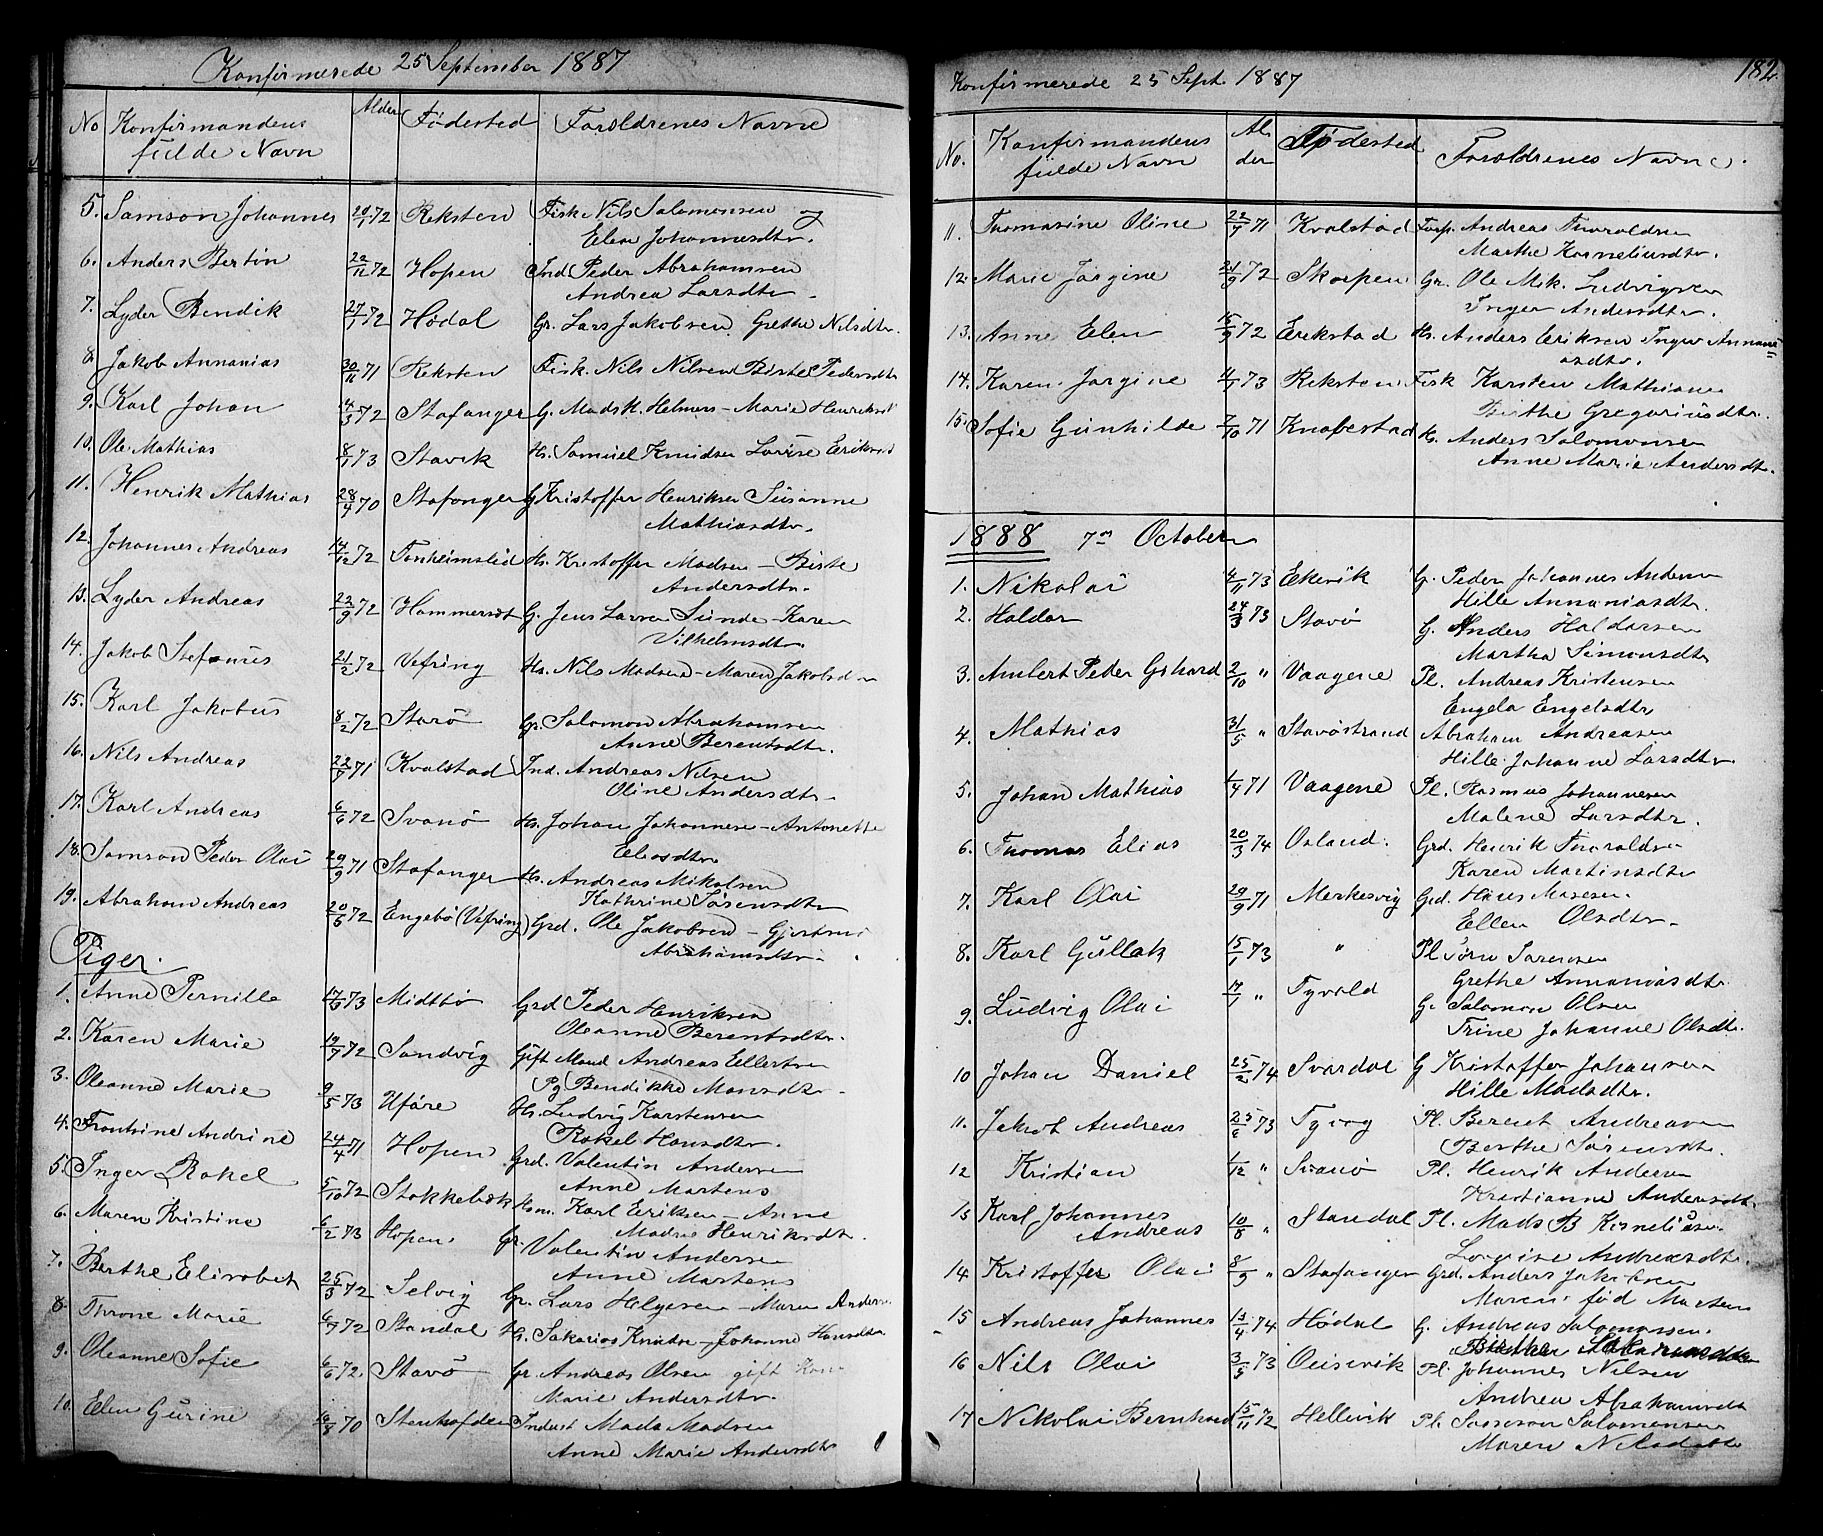 Konfirmerede 25 September 1887
No Konfirmandens fulde Navn Alder Fødested Forældrenes Navne
5. Samson Johannes 20/1 72 Reksten Fisk. Nils Salomonsen
Elen Johannesdtr.
6. Anders Bertin 22/11 72 Hopen Ind Peder Abrahamsen
Andrea Larsdtr
7. Lyder Bendik 27/7 72 Hødal Gr. Lars Jakobsen Grethe Nilsdtr.
8. Jakob Annanias 30/11 71 Reksten Fisk. Nils Nilsen Birte Pedersdtr
9. Karl Johan 4/3 72 Stafanger G. Mads K. Helmers – Marie Henriksdt
10. Ole Mathias 8/1 73 Stavik Hs. Samuel Knudsen Lovise Eriksdt
11. Henrik Mathias 28/4 70 Stafanger G. Kristoffer Henriksen Susanne
Mathiasdtr.
12. Johannes Andreas 14/12 72 Tonheimslid Hs. Kristoffer Madsen – Birte
Andersdtr.
13. Lyder Andreas 22/9 72 Hammersdt G. Jens Larsen Sunde – Karen
Vilhelmsdtr.
14. Jakob Stefanus 21/2 72 Vefring Hs. Nils Madsen – Maren Jakobsdtr
15. Karl Jakobus 8/2 72 Stavø Gr. Salomon Abrahamsen
Anne Berentsdtr.
16. Nils Andreas 22/7 71 Kvalstad Ind. Andreas Nilsen
Oline Andersdtr
17. Karl Andreas 6/6 72 Svanø Hs. Johan Johannesen – Antonette
Eliasdtr
18. Samson Peder Olai 29/9 71 Stafanger Hs. Andreas Mikalsen
Kathrine Sørensdtr
19. Abraham Andreas 20/5 72 Engebø (Vefring) Grd. Ole Jakobsen – Gjertrud
Abrahamsdtr
Piger.
1. Anne Pernille 17/3 73 Midtbø Grd Peder Henriksen
Oleanne Berentsdtr.
2. Karen Marie 19/7 72 Sandvig Gift Mand Andreas Ellertsen
Pg Bendikke Monsdtr
3. Oleanne Marie 9/5 73 Uføre Hs. Ludvig Karstensen
Rakel Hansdtr.
4. Frantsine Andrine 24/4 71 Hopen Grd. Valentin Andersen
Anne Martens
5. Inger Rakel 5/10 72 Stokkebæk Hsm. Karl Eriksen – Anne
Madrie Henriksdtr.
6. Maren Kristine 6/2 73 Hopen Gr. Valentin Andersen
Anne Martens
7. Berthe Elisabet 25/3 72 Selvig Gr. Lars Helgesen – Maren Anders
8. Throne Marie 6/7 72 Standal Hs. Sakarias Knudsen – Johanne Hansdtr
9. Oleanne Sofie 6/6 72 Stavø Gr. Andreas Olsen gift Kone
Marie Andersdtr.
10. Elen Gurine 16/8 70 Indust Mads Madsen
Anne Marie Andersdtr
182
Konfirmerede 25 Sept. 1887
No. Konfirmandens fulde Navn Alder Fødested Forældrenes Navne.
11. Thomasine Oline 22/7 71 Kvalstad Forp. Andreas Thoraldsen
Marthe Korneliusdtr.
12. Marie Jørgine 21/9 72 Skorpen Gr. Ole Mik. Ludvigsen
Inger Andersdtr.
13. Anne Elen 15/9 72 Erikstad Hs. Anders Eriksen Inger Annani=
asdtr.
14. Karen Jørgine 4/7 73 Reksten Fisk Karsten Mathiasen
Birthe Gregoriusdtr.
15. Sofie Gunhilde 7/10 71 Knapestad Hs. Anders Salomonsen
Anne Marie Andersdtr.
1888 7m October
1. Nikolai 4/11 73 Eikevik G. Peder Johannes Andersen
Hille Annaniasdtr.
2. Haldor 24/3 73 Stavø G. Anders Haldorsen
Martha Simonsdtr
3. Ambert Peder Gerhard 2/10 " Vaagene Pl. Andreas Kristensen
Engela Engelsdtr
4. Mathias 31/5 " Stavøstrand Abraham Andreasen
Hille Johanne Larsdtr.
5. Johan Mathias 4/4 71 Vaagene Pl. Rasmus Johannesen
Malene Larsdtr.
6. Thomas Elias 20/3 74 Osland. Grd. Henrik Thoraldsen
Karen Martinsdtr
7. Karl Olai 29/9 71 Merkesvig Grd. Hans
Ellen Olsdtr.
8. Karl Gullak 15/1 73 " Pl Sørensen
Grethe Annaniasdtr
9. Ludvig Olai 17/1 " Tyvold G. Salomon Olsen
Trine Johanne Olsdtr.
10 Johan Daniel 25/2 74 Svardal G Kristoffer Johansen
Hille Madsdtr.
11. Jakob Andreas 25/6 73 Pl. Berent Andreasen
Berthe Sørensdtr.
12 Kristian 1/12 " Svanø Pl. Henrik Andersen
Kristianne Andersdtr.
13 Karl Johannes
Andreas 10/8 " Standal Pl. Mads B Kornelius
Lovise Andreasdtr
14 Kristoffer Olai 8/9 " Stafanger Grd. Anders Jakobsen
Maren. fød Martens
15 Andreas Johannes 13/4 74 Hødal G. Andreas Salomonsen.
Birthe
16 Nils Olai 3/5 73 Pl Johannes Nilsen
Andrea Abrahamsdtr
17 Nikolai Berntsen 15/11 72 Hellevik Pl. Salomonsen
Maren Nilsdatter